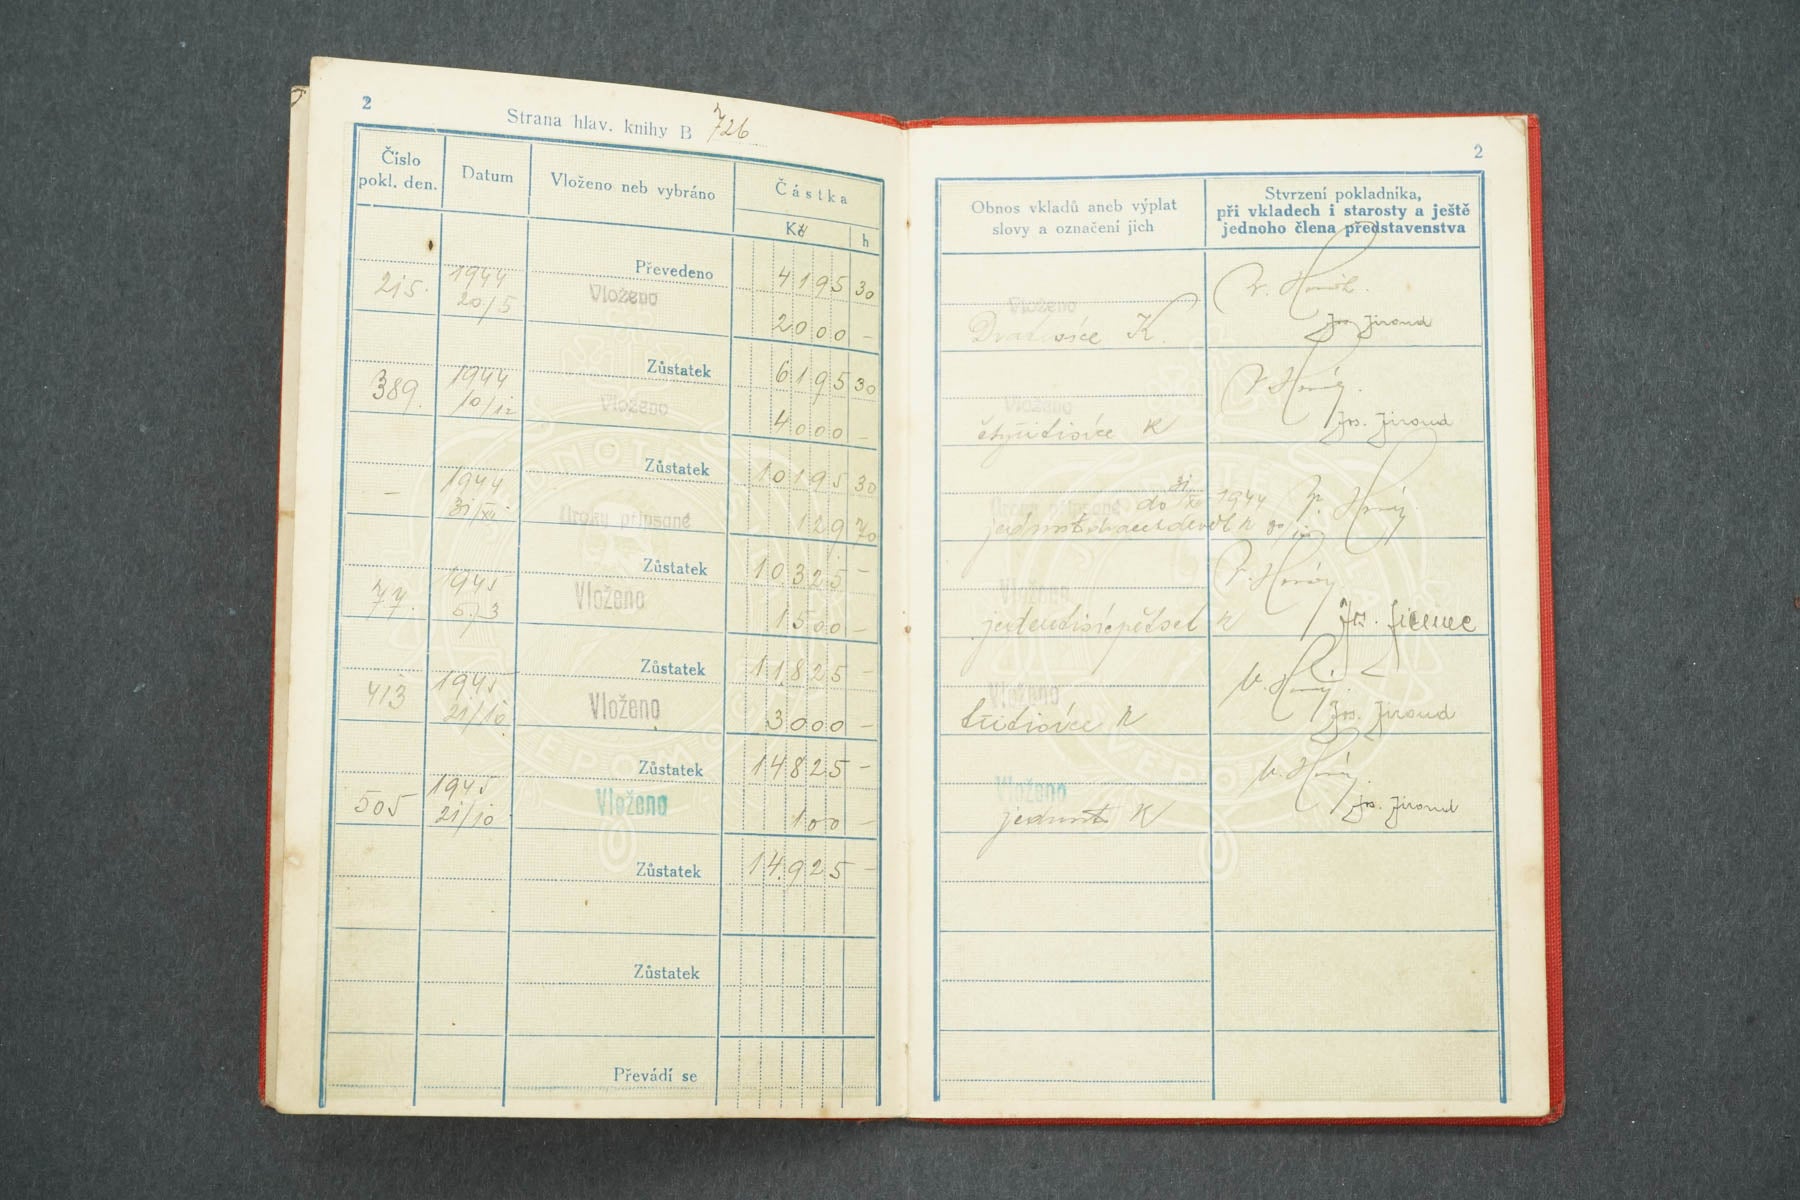 2
Strana hlav. knihy B 726
Číslo pokl. den.
Datum
Vloženo neb vybráno
Částka
Kč h
Převedeno 4195 30
215. 1944 20/5 Vloženo 2000 —
Zůstatek 6195 30
389. 1944 10/12 Vloženo 4000 —
Zůstatek 10195 30
— 1944 31/XII Úroky připsané 129 70
Zůstatek 10.325 —
77. 1945 5./3 Vloženo 1500 —
Zůstatek 11.825 —
413 1945 21/10 Vloženo 3000 —
Zůstatek 14825 —
505 1945 21/10 Vloženo 100 —
Zůstatek 14.925 —
Zůstatek
Převádí se
2
Obnos vkladů aneb výplat
slovy a označení jich
Stvrzení pokladníka,
při vkladech i starosty a ještě
jednoho člena představenstva
Vloženo
K.
Jos. Jiroud
Vloženo
čtyřitisíce K
Jos. Jiroud
Úroky připsané do 31/XII 1944
Vloženo
jedentisícpětset K
Jos.
Vloženo
třitisíce K
Jos. Jiroud
Vloženo
jednosto K
Jos. Jiroud
JEDNOTE
NEPOMUC